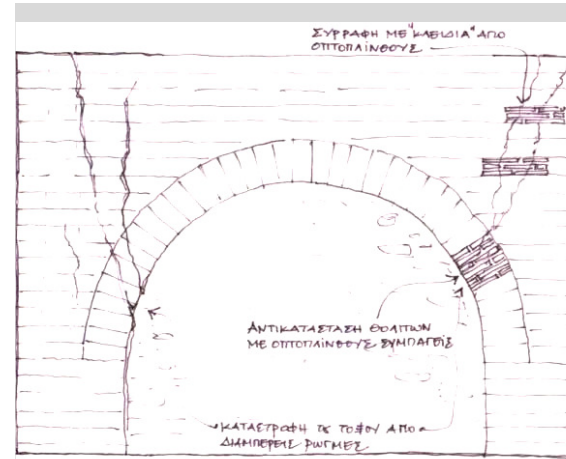 ΣΥΡΡΑΦΗ ΜΕ "ΚΛΕΙΔΙΑ" ΑΠΟ
ΟΠΤΟΠΛΙΝΘΟΥΣ
ΑΝΤΙΚΑΤΑΣΤΑΣΗ ΘΟΛΙΤΩΝ
ΜΕ ΟΠΤΟΠΛΙΝΘΟΥΣ ΣΥΜΠΑΓΕΙΣ
ΚΑΤΑΣΤΡΟΦΗ ΤΟΞΟΥ ΑΠΟ
ΔΙΑΜΠΕΡΕΙΣ ΡΩΓΜΕΣ